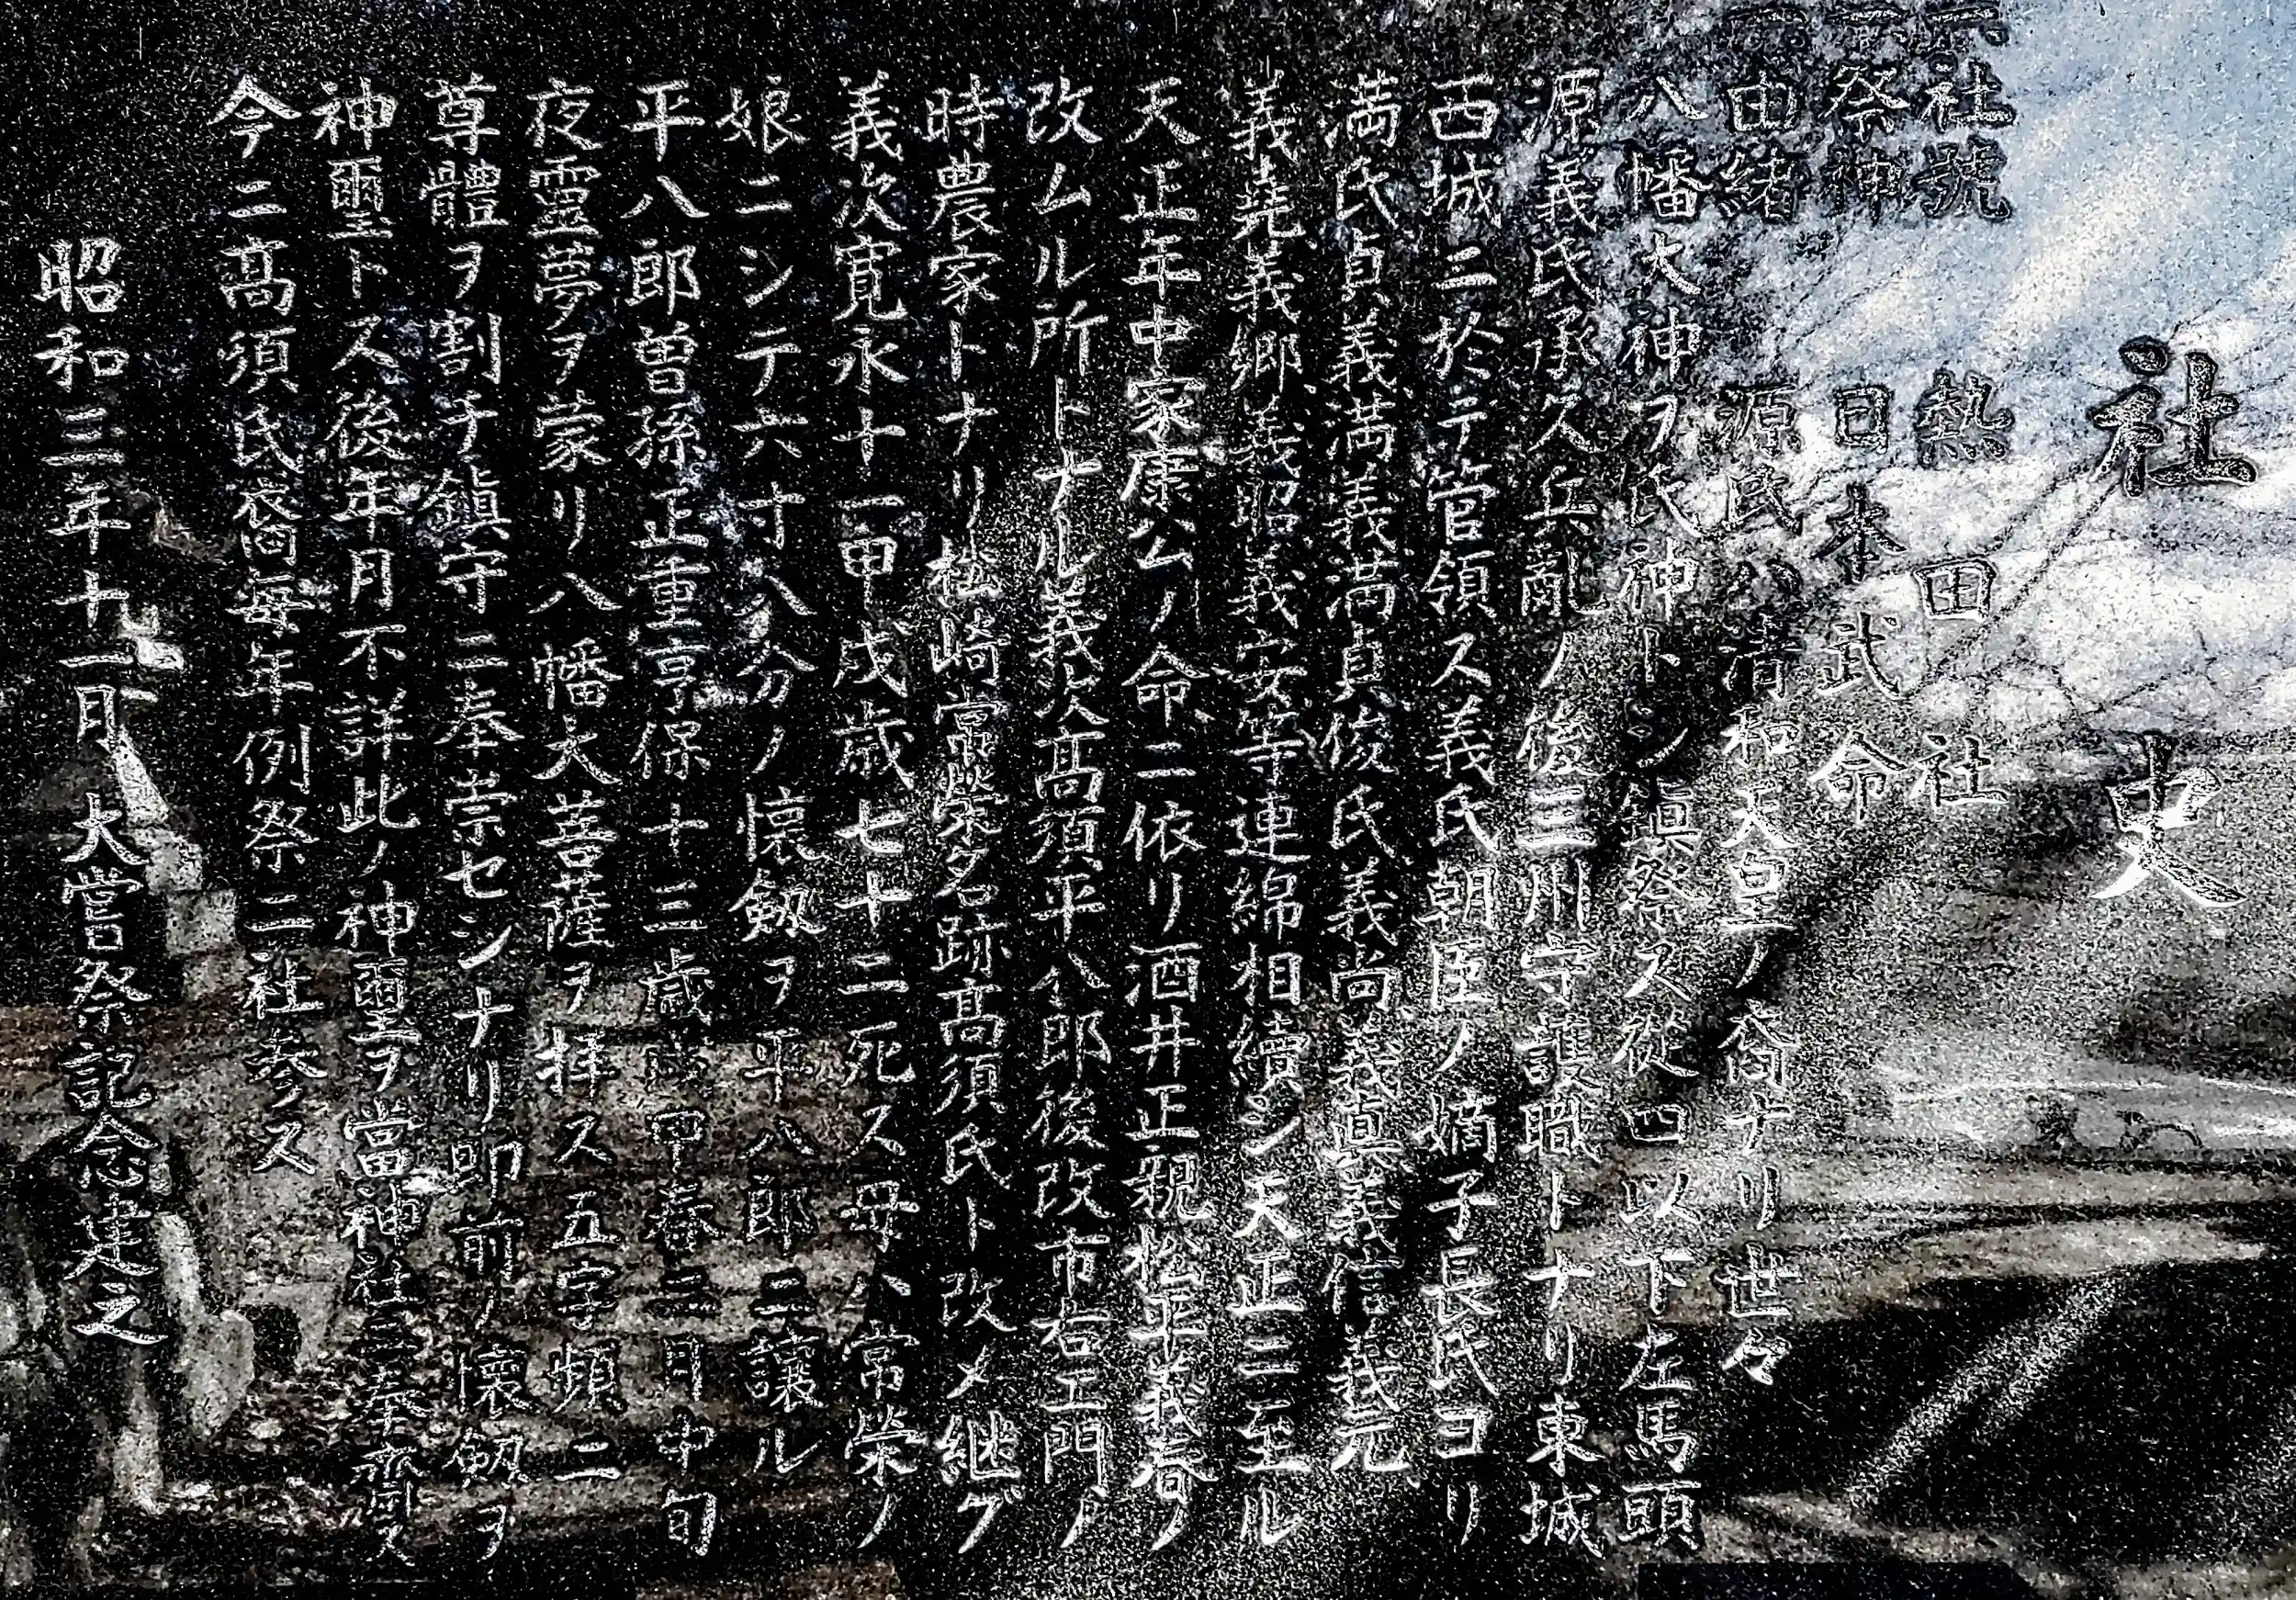 社史
一社號 熱田社
一祭神 日本武命
一由緒 源氏ハ清和天皇ノ裔ナリ世々
八幡大神ヲ氏神トシ鎮祭ス從四以下左馬頭
源義氏承久兵亂ノ後三州守護職トナリ東城
西城ニ於テ管領ス義氏朝臣ノ嫡子長氏ヨリ
満氏貞義満義満貞俊氏義尚義真義信義元
義堯義郷義昭義安等連綿相續シ天正ニ至ル
天正年中家康公ノ命ニ依リ酒井正親松平義春ノ
改ムル所トナル義次髙須平八郎後改市右エ門ノ
時農家トナリ松崎常榮名跡髙須氏ト改メ継グ
義次寛永十一甲戌歳七十二死ス母ハ常榮ノ
娘ニシテ六寸八分ノ懐劔ヲ平八郎ニ譲ル
平八郎曽孫正重享保十三歳戊甲春二月中旬
夜靈夢ヲ蒙リ八幡大菩薩ヲ拝ス五字頻ニ
尊體ヲ割チ鎮守ニ奉崇セシナリ即前ノ懐劔ヲ
神璽トス後年月不詳此ノ神璽ヲ當神社ニ奉齋ス
今ニ髙須氏裔毎年例祭ニ社参ス
昭和三年十一月 大嘗祭記念建之